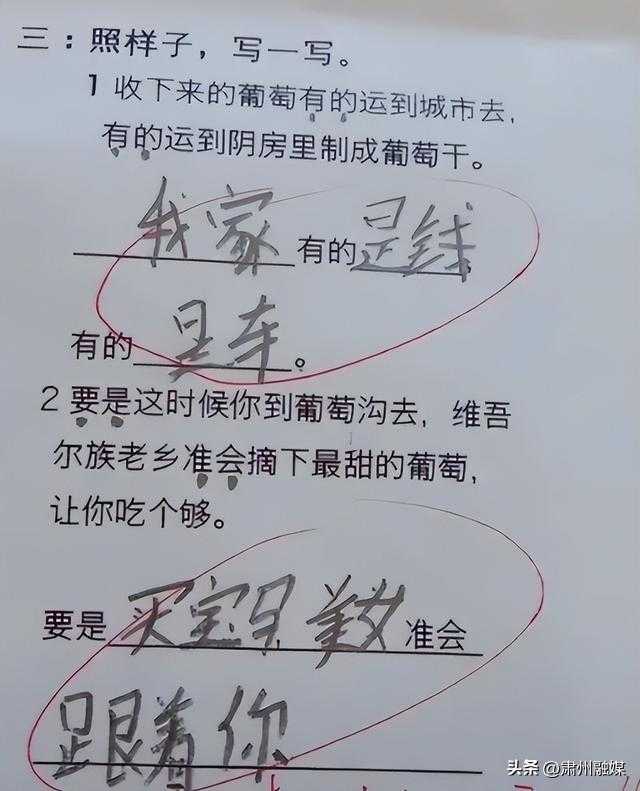 三：照样子，写一写。
1 收下来的葡萄有的运到城市去，
有的运到阴房里制成葡萄干。
我家有的是钱，
有的是车。
2 要是这时候你到葡萄沟去，维吾
尔族老乡准会摘下最甜的葡萄，
让你吃个够。
要是买宝马，美女准会
跟着你
头条 @肃州融媒